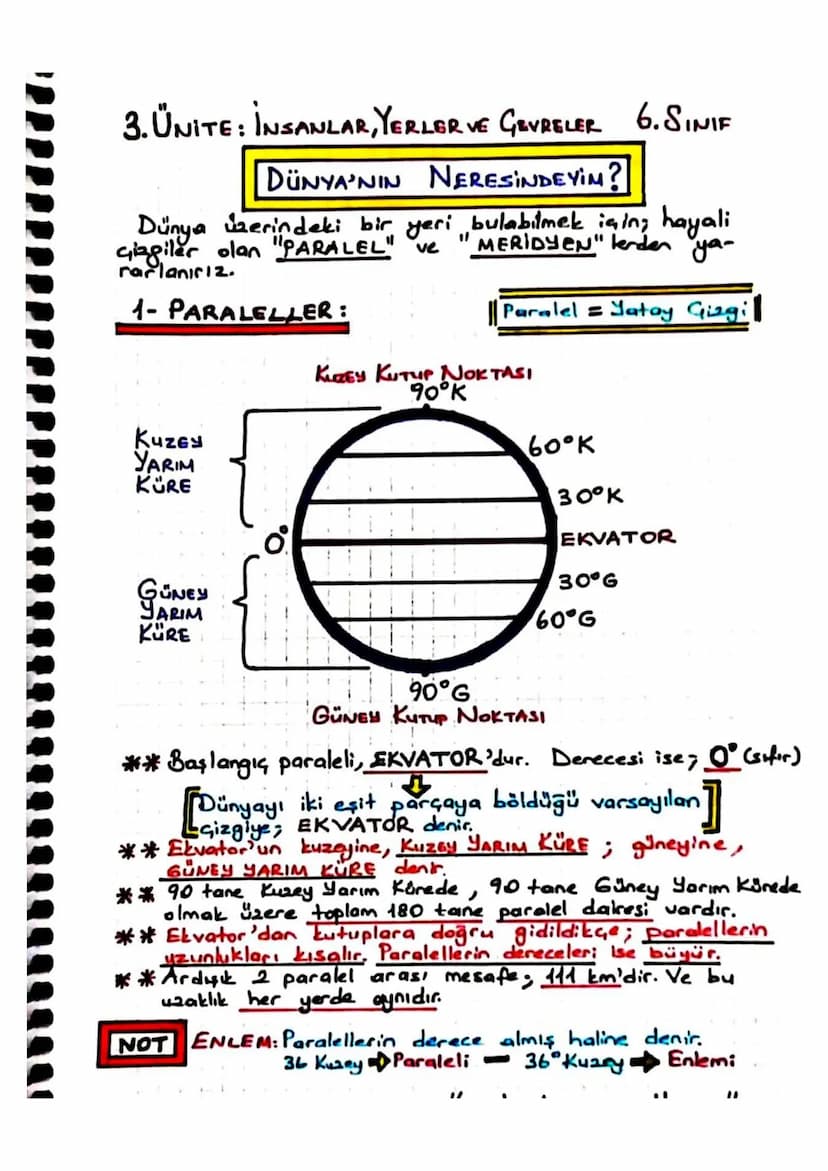 3. ÜNİTE: İNSANLAR, YERLER VE ÇEVRELER 6. SINIF
DÜNYA'NIN NERESİNDEYİM?
Dünya üzerindeki bir yeri bulabilmek için; hayali
çizgiler olan "PARALEL" ve "MERİDYEN"lerden ya-
rarlanırız.
1- PARALELLER:
Paralel = Yatay Çizgi
KUZEY KUTUP NOKTASI
90°K
KUZEY
YARIM
KÜRE
60°K
30°K
0°
EKVATOR
GÜNEY
YARIM
KÜRE
30°G
60°G
90°G
GÜNEY KUTUP NOKTASI
** Başlangıç paraleli, EKVATOR'dur. Derecesi ise; 0° (sıfır)
[Dünyayı iki eşit parçaya böldüğü varsayılan
çizgiye; EKVATOR denir.]
** Ekvator'un kuzeyine, KUZEY YARIM KÜRE ; güneyine,
GÜNEY YARIM KÜRE denir.
** 90 tane Kuzey Yarım Kürede, 90 tane Güney Yarım Kürede
olmak üzere toplam 180 tane paralel dairesi vardır.
** Ekvator'dan kutuplara doğru gidildikçe; paralellerin
uzunlukları kısalır. Paralellerin dereceleri ise büyür.
** Ardışık 2 paralel arası mesafe; 111 km'dir. Ve bu
uzaklık her yerde aynıdır.
NOT ENLEM: Paralellerin derece almış haline denir.
36 Kuzey ➡ Paraleli - 36° Kuzey ➡ Enlemi